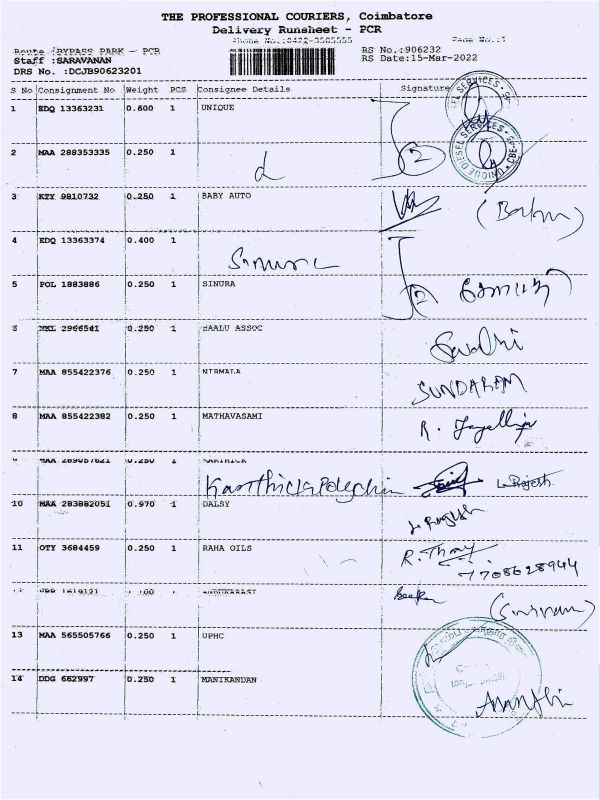 THE PROFESSIONAL COURIERS, Coimbatore
Delivery Runsheet - PCR
Phone No.:0422-3505555 Page No.:1
Route :BYPASS PARK - PCR RS No.:906232
Staff :SARAVANAN RS Date:15-Mar-2022
DRS No. :DCJB90623201
S No Consignment No Weight PCS Consignee Details Signature
1 EDQ 13363231 0.600 1 UNIQUE
UNIQUE DIESEL SERVICES CBE
2 MAA 288353335 0.250 1
3 KTY 9810732 0.250 1 BABY AUTO
4 EDQ 13363374 0.400 1
5 POL 1883886 0.250 1 SINURA
6 NKL 2966541 0.250 1 BAALU ASSOC
7 MAA 855422376 0.250 1 NIRMALA SUNDARAM
8 MAA 855422382 0.250 1 MATHAVASAMI
MAA 289057621 0.250 1 L. Rajesh
10 MAA 283882051 0.970 1 DALSY
11 OTY 3684459 0.250 1 RAHA OILS
7708628944
13 MAA 565505766 0.250 1 UPHC
14 DDG 662997 0.250 1 MANIKANDAN